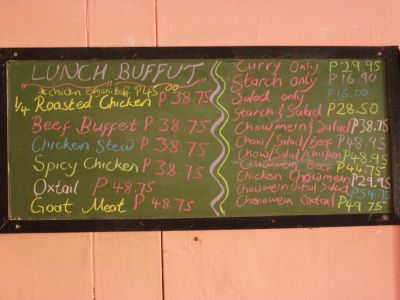 LUNCH BUFFUT
*Chicken Biryani Buff P45.00
1/4 Roasted Chicken P 38.75
Beef Buffet P 38.75
Chicken Stew P 38.75
Spicy Chicken P 38.75
Oxtail P 48.75
Goat Meat P 48.75
Curry Only P29.95
Starch only P16.90
Salad only P16.00
Starch & Salad P28.50
Chowmein / Salad P38.75
Chow/Salad/Beef P48.95
Chow/Salad/Chicken P48.95
Chowmein Beef P44.75
Chicken Chowmein P29.95
Chowmein Oxtail Salad P54.75
Chowmein Oxtail P49.75